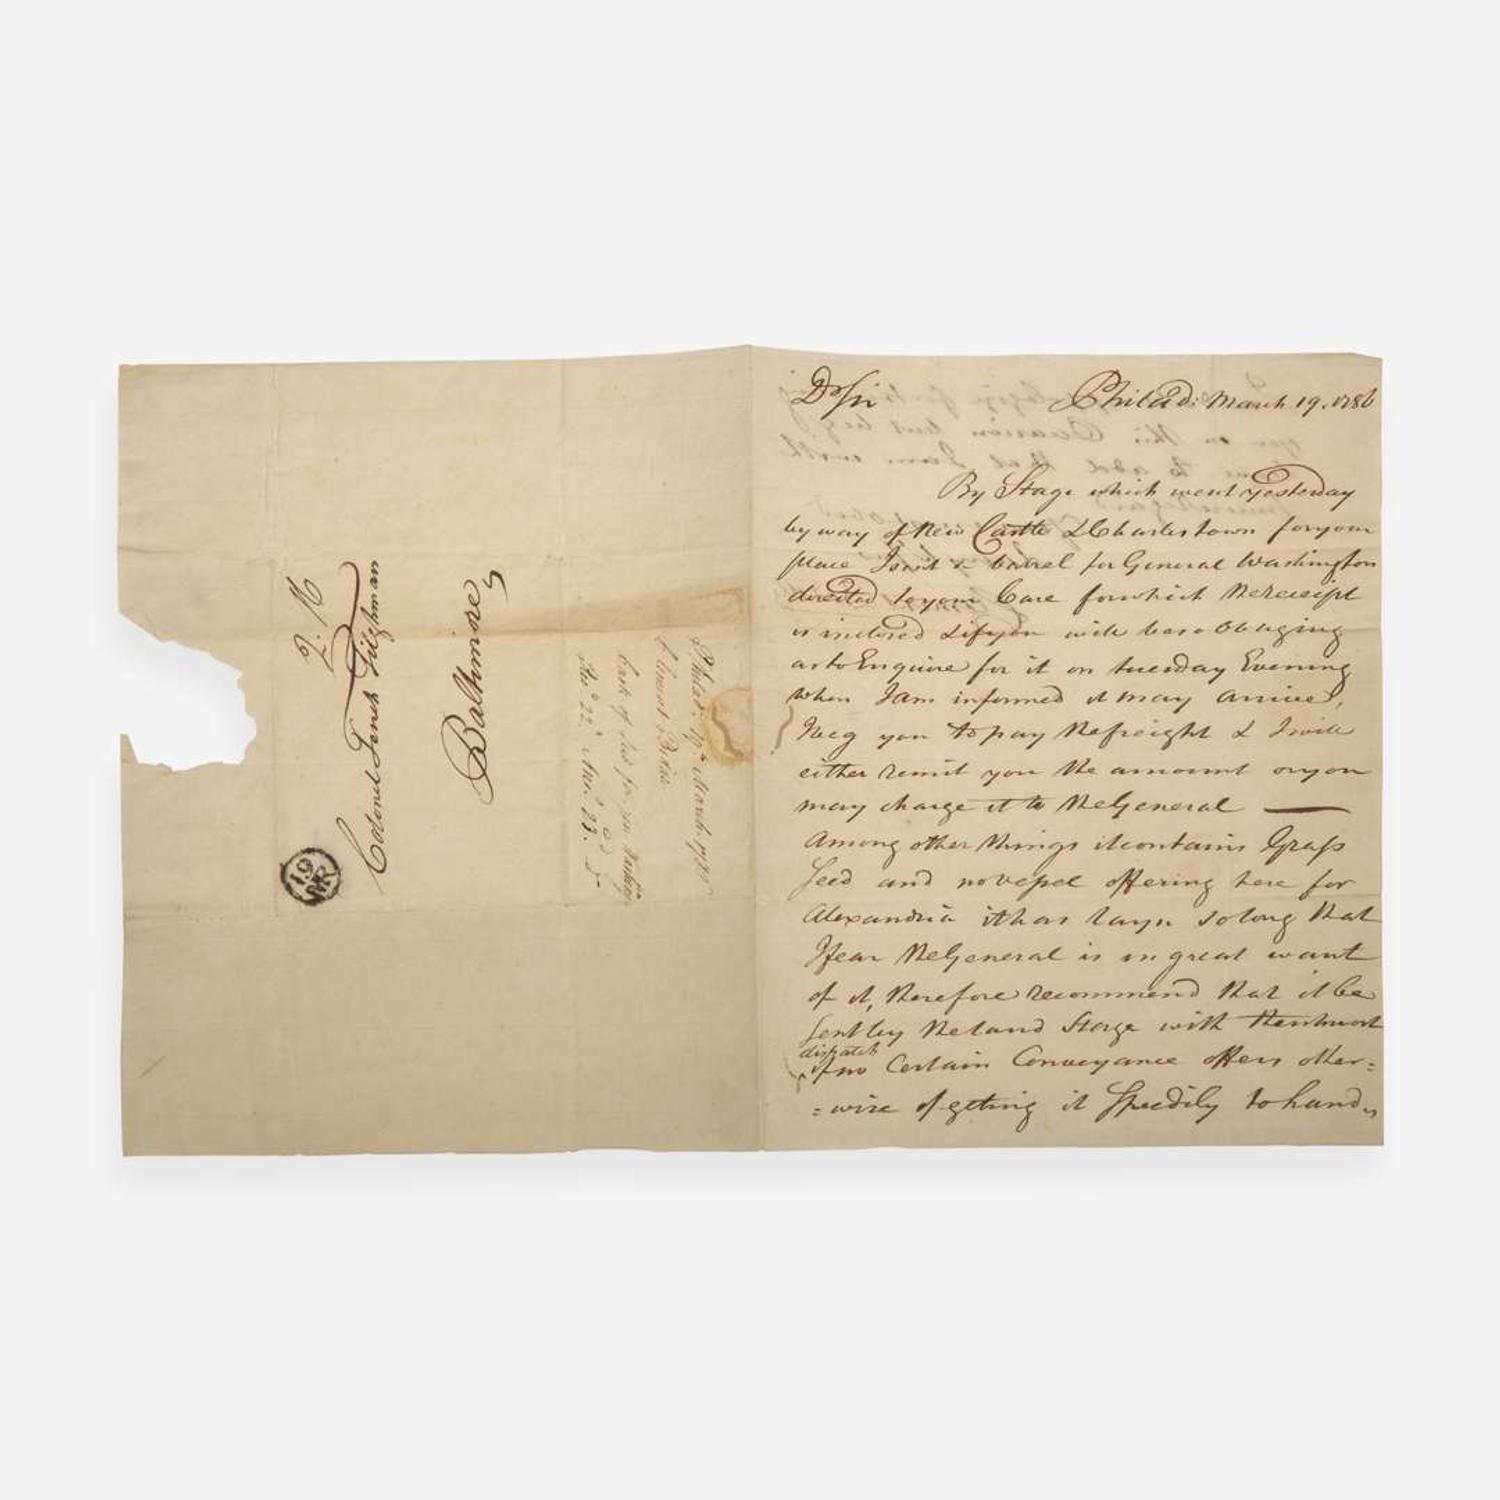 2.16
Colonel Tench Tilghman
Baltimore
19
MR
Philad. 19th March 1786
Clement Biddle
Recd 22d Ansd 23d
Dr Sir
Philad: March 19. 1786
By Stage which went yesterday
by way of New Castle & Charlestown for your
place I sent a barrel for General Washington
directed to your Care for which the receipt
is inclosed & if you will be so obliging
as to Enquire for it on tuesday Evening
when I am informed it may arrive,
I beg you to pay the freight & I will
either remit you the amount or you
may charge it to the General
Among other things it contains Grass
Seed and no vessel offering here for
Alexandria it has layn so long that
I fear the General is in great want
of it, therefore recommend that it be
sent by the land Stage with the utmost
dispatch
if no Certain Conveyance offers other=
=wise of getting it Speedily to hand